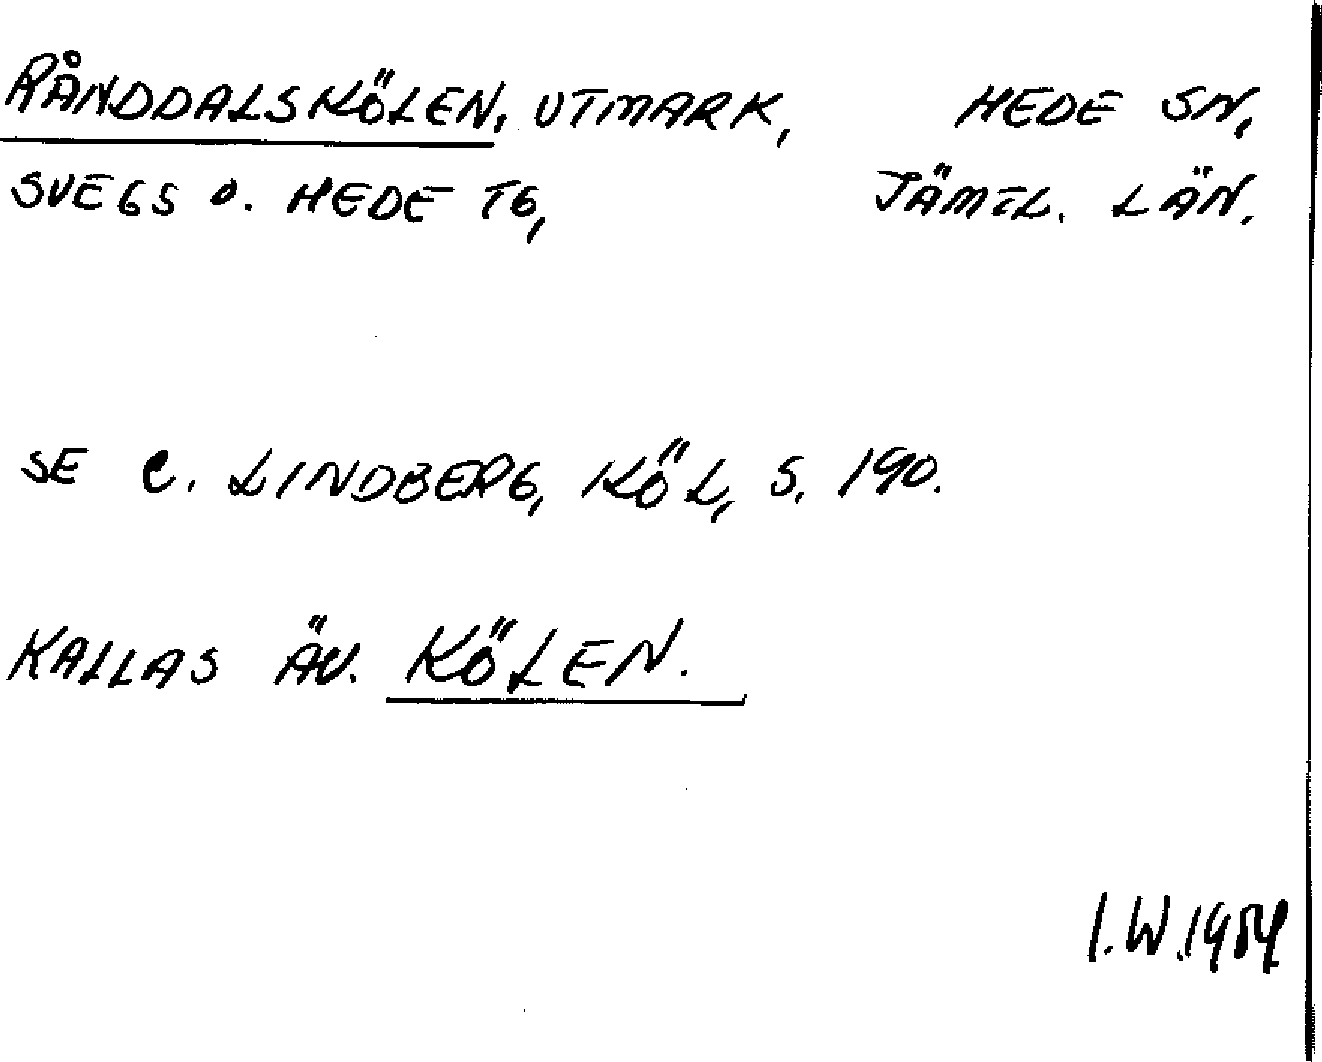 RÅNDDALSKÖLEN, UTMARK, HEDE SN,
SVEGS O. HEDE TG, JÄMTL. LÄN.
SE C. LINDBERG, KÖL, S. 190.
KALLAS ÄV. KÖLEN.
I.W.1954